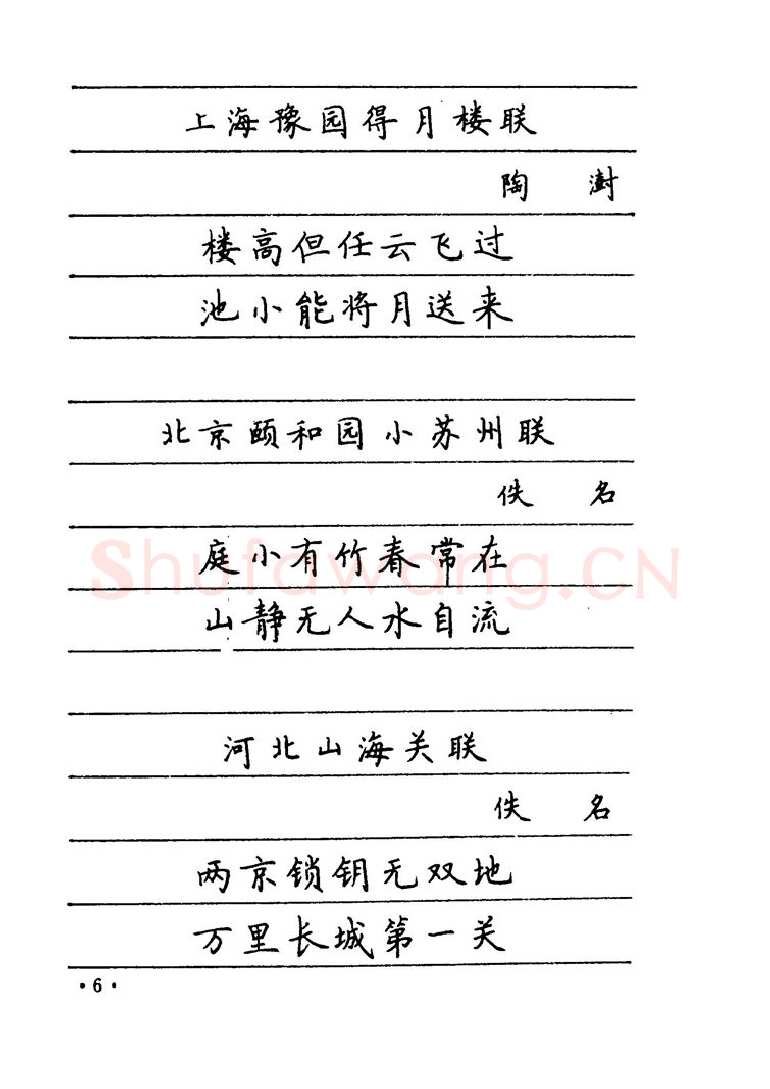 上海豫园得月楼联
陶 澍
楼高但任云飞过
池小能将月送来
北京颐和园小苏州联
佚 名
庭小有竹春常在
山静无人水自流
河北山海关联
佚 名
两京锁钥无双地
万里长城第一关
·6·
Shufawang.CN